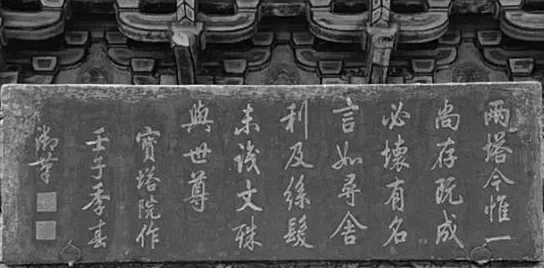 兩塔今惟一
尚存既成
必壞有名
言如尋舍
利及絲髮
未誇文殊
與世尊
寶塔院作
壬子季春
御筆